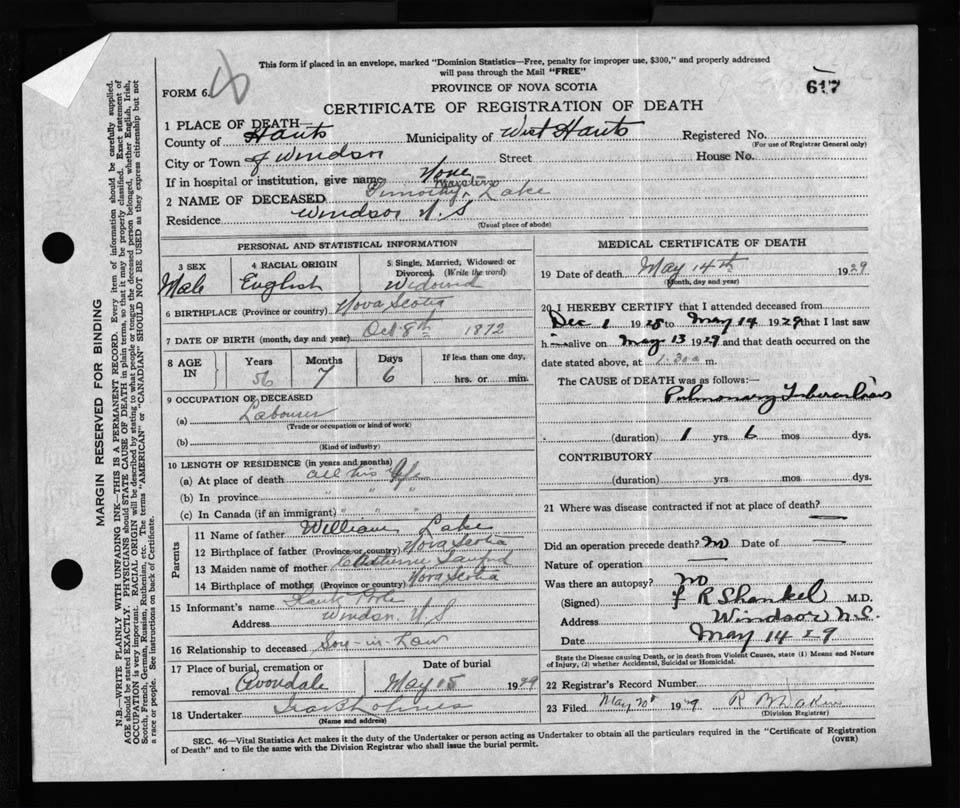 This form if placed in an envelope, marked "Dominion Statistics—Free, penalty for improper use, $300," and properly addressed
will pass through the Mail "FREE"
FORM 6.
PROVINCE OF NOVA SCOTIA
617
CERTIFICATE OF REGISTRATION OF DEATH
1 PLACE OF DEATH—
County of Hants Municipality of West Hants Registered No.
(For use of Registrar General only)
City or Town of Windsor Street House No.
If in hospital or institution, give name None
2 NAME OF DECEASED Timothy Lake
Residence Windsor N.S
(Usual place of abode)
PERSONAL AND STATISTICAL INFORMATION
3 SEX 4 RACIAL ORIGIN 5 Single, Married, Widowed or
Divorced. (Write the word)
Male English Widowed
6 BIRTHPLACE (Province or country) Nova Scotia
7 DATE OF BIRTH (month, day and year) Oct 8th 1872
8 AGE IN Years Months Days If less than one day,
56 7 6 hrs. or min.
9 OCCUPATION OF DECEASED
(a) Labourer
(Trade or occupation or kind of work)
(b)
(Kind of industry)
10 LENGTH OF RESIDENCE (in years and months)
(a) At place of death all his life
(b) In province " " "
(c) In Canada (if an immigrant) " " "
Parents
11 Name of father William Lake
12 Birthplace of father (Province or country) Nova Scotia
13 Maiden name of mother Catherine Sanford
14 Birthplace of mother (Province or country) Nova Scotia
15 Informant's name
Address Windsor N.S
16 Relationship to deceased Son-in-Law
17 Place of burial, cremation or Date of burial
removal Avondale May 15 1929
18 Undertaker
(Name and address)
MEDICAL CERTIFICATE OF DEATH
19 Date of death May 14th 1929
(Month, day and year)
20 I HEREBY CERTIFY that I attended deceased from
Dec 1 1928 to May 14 1929 that I last saw
h alive on May 13 1929 and that death occurred on the
date stated above, at 1:30 a m.
The CAUSE OF DEATH was as follows:—
Pulmonary Tuberculosis
(duration) 1 yrs 6 mos dys.
CONTRIBUTORY
(duration) yrs mos dys.
21 Where was disease contracted if not at place of death? —
Did an operation precede death? no Date of —
Nature of operation —
Was there an autopsy? no
(Signed) R Shankel M.D.
Address Windsor N.S.
Date May 14 29
State the Disease causing Death, or in death from Violent Causes, state (1) Means and Nature
of Injury, (2) whether Accidental, Suicidal or Homicidal.
22 Registrar's Record Number
23 Filed May 20 1929
(Division Registrar)
SEC. 46—Vital Statistics Act makes it the duty of the Undertaker or person acting as Undertaker to obtain all the particulars required in the "Certificate of Registration
of Death" and to file the same with the Division Registrar who shall issue the burial permit.
(OVER)
MARGIN RESERVED FOR BINDING
N.B.—WRITE PLAINLY WITH UNFADING INK—THIS IS A PERMANENT RECORD. Every item of information should be carefully supplied.
AGE should be stated EXACTLY. PHYSICIANS should STATE CAUSE OF DEATH in plain terms, so that it may be properly classified. Exact statement of
OCCUPATION is very important. RACIAL ORIGIN will be described by stating to what people or tongue the deceased person belonged, whether English, Irish,
Scotch, French, German, Russian, Ruthenian, etc. The terms "AMERICAN" or "CANADIAN" SHOULD NOT BE USED as they express citizenship but not
a race or people. See instructions on back of Certificate.